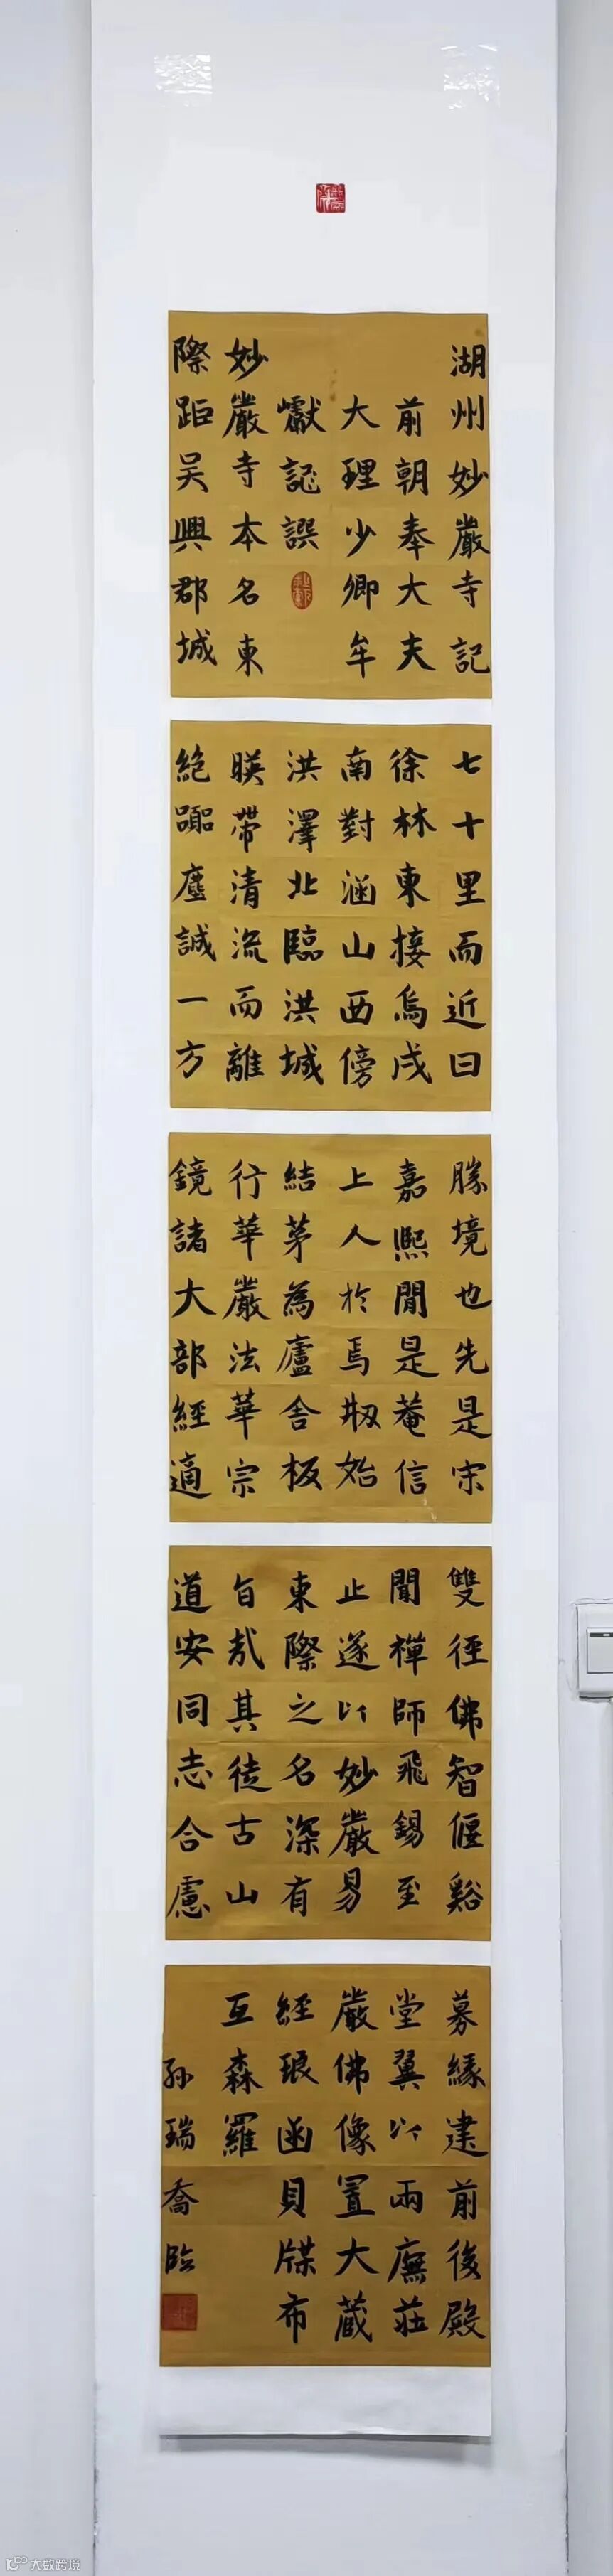 湖州妙嚴寺記
前朝奉大夫
大理少卿牟
巘記譔
妙嚴寺本名東
際距吳興郡城
七十里而近曰
徐林東接烏戌
南對涵山西傍
洪澤北臨洪城
暎帶清流而離
絕囂塵誠一方
勝境也先是宋
嘉熙間是菴信
上人於焉剏始
結茅為廬舍板
行華嚴法華宗
鏡諸大部經適
雙徑佛智偃谿
聞禪師飛錫至
止遂以妙嚴易
東際之名深有
旨哉其徒古山
道安同志合慮
募緣建前後殿
堂翼以兩廡莊
嚴佛像置大藏
經琅函貝牒布
互森羅
孫瑞喬臨
大数跨境